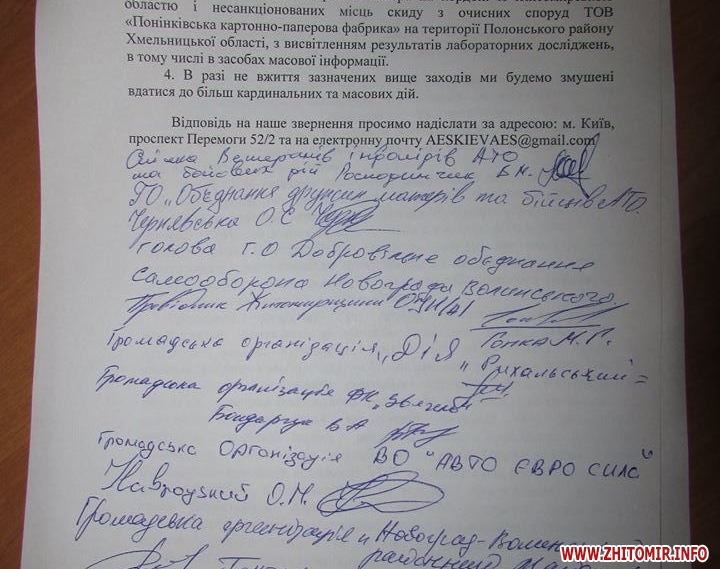 областю і несанкціонованих місць скиду з очисних споруд ТОВ
«Понінківська картонно-паперова фабрика» на території Полонського району
Хмельницької області, з висвітленням результатів лабораторних досліджень,
в тому числі в засобах масової інформації.
4. В разі не вжиття зазначених вище заходів ми будемо змушені
вдатися до більш кардинальних та масових дій.
Відповідь на наше звернення просимо надіслати за адресою: м. Київ,
проспект Перемоги 52/2 та на електронну почту AESKIEVAES@gmail.com
Спілка Ветеранів інвалідів АТО
та бойових дій
ГО „Об'єднання дружин матерів та бійців АТО.
Чернявська О.С
голова Г.О Добровільне об'єднання
Самооборона Новограда Волинського
Провідник Житомирщини ОУН
Громадська організація „ДІЯ Гопка М.П.
„Рихальський"
Громадська організація ФК „Звягель"
Бондарчук В А
Громадська Організація ВО "АВТО ЄВРО СИЛА"
Навроцький О.М.
Громадська організація „Новоград-
WWW.ZHITOMIR.INFO